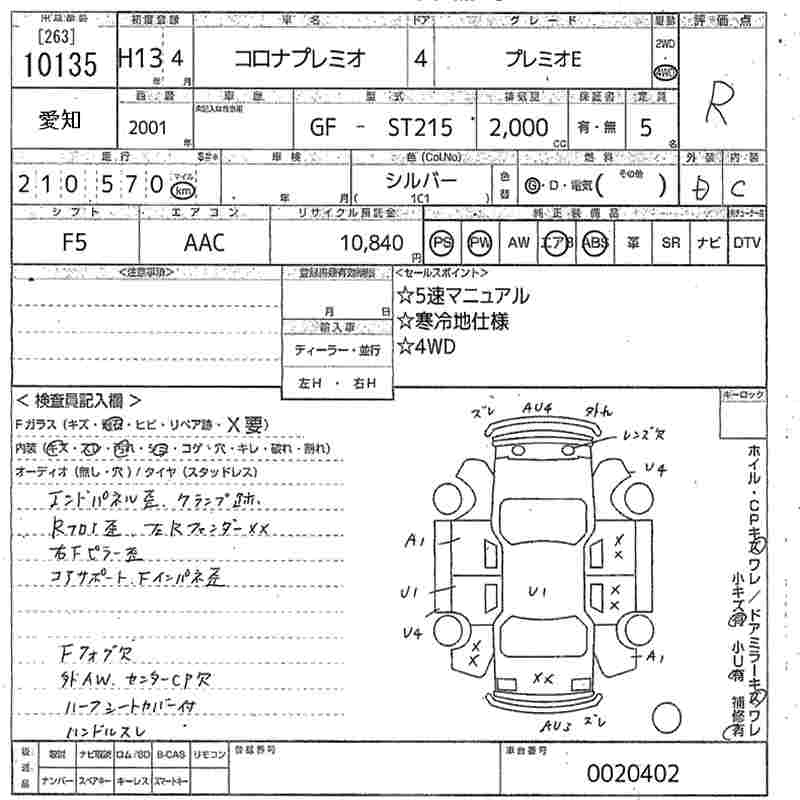 出品番号 初度登録 車名 ドア グレード 駆動 評価点
[263]
10135 H13 4 コロナプレミオ 4 プレミオE 2WD 4WD R
年 月
愛知 西暦 車歴 型式 排気量 保証書 定員
2001 年 GF - ST215 2,000 CC 有・無 5 名
走行 車検 色(Col.No) 燃料 外装 内装
210570 マイル km 年 月 シルバー 色替 G・D・電気( その他 ) D C
( 1C1 )
シフト エアコン リサイクル預託金 純正装備品
F5 AAC 10,840 円 PS PW AW エアB ABS 革 SR ナビ DTV
<注意事項> 登録書類有効期限 <セールスポイント>
月 日
☆5速マニュアル
☆寒冷地仕様
☆4WD
輸入車
ディーラー・並行
左H ・ 右H
< 検査員記入欄 >
キーロック
Fガラス(キズ・・ヒビ・リペア跡・X要)
内装(キズ・スレ・汚れ・シミ・コゲ・穴・キレ・破れ・割れ)
オーディオ(無し・穴)/タイヤ(スタッドレス)
エンドパネル歪、クランプ跡
Rフロア歪 左RフェンダーXX
右Fピラー歪
コアサポート、Fインパネ歪
Fフォグ欠
外AW、センターCP欠
ハーフシートカバー付
ハンドルスレ
ズレ AU4 外れ
レンズ欠
U4
A1
X
X
U1
U1
X
X
U4
X
X
XX
A1
AU3 ズレ
ホイル・CPキズワレ/ドアミラーキズワレ
小キズ有 小U有 補修有
後送品 取説 ナビ取説 ロム/SD B-CAS リモコン 登録番号 車台番号
ナンバー スペアキー キーレス スマートキー 0020402